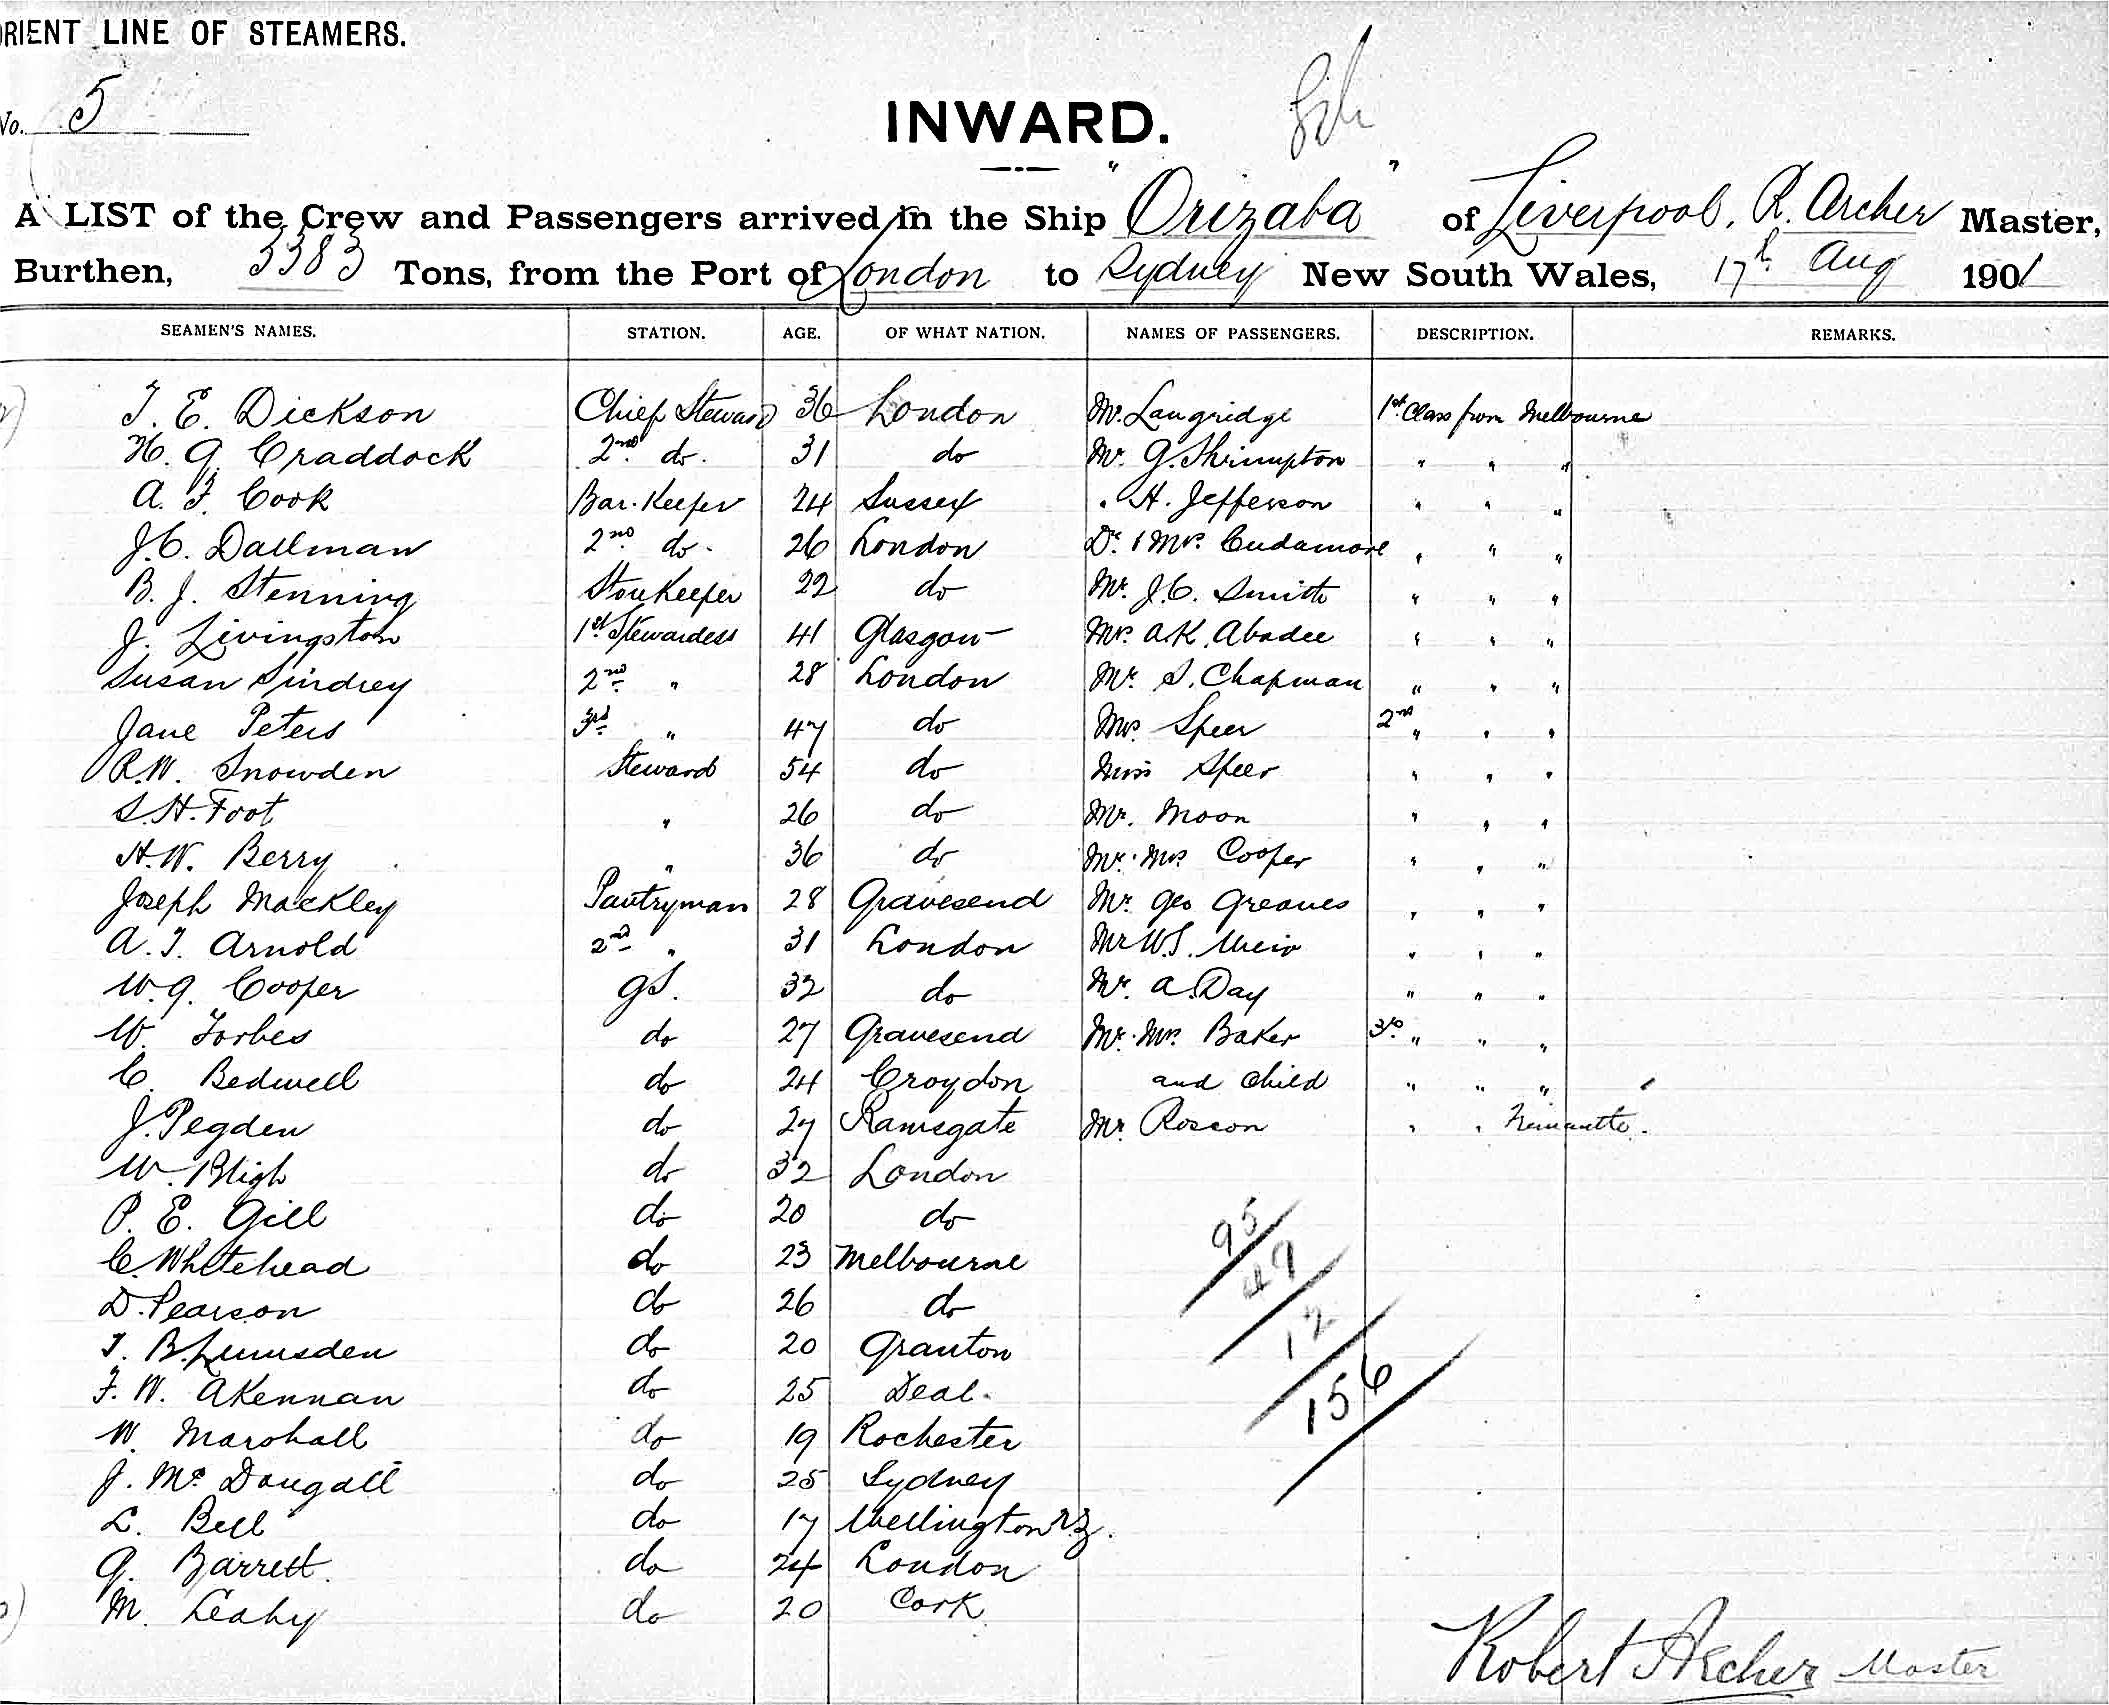 ORIENT LINE OF STEAMERS.
No. 5
INWARD.
A LIST of the Crew and Passengers arrived in the Ship "Orizaba" of Liverpool, R. Archer Master,
Burthen, 3383 Tons, from the Port of London to Sydney New South Wales, 17th Aug 1901
SEAMEN'S NAMES. STATION. AGE. OF WHAT NATION. NAMES OF PASSENGERS. DESCRIPTION. REMARKS.
T. E. Dickson Chief Steward 36 London Mr. Langridge 1st Class from Melbourne
H. G. Craddock 2nd do. 31 do Mr. G. Shrimpton " " "
A. F. Cook Bar. Keeper 24 Sussex " H. Jefferson " " "
J. C. Dallman 2nd do. 26 London Dr. & Mrs. Cudamore " " "
B. J. Stenning Storekeeper 22 do Mr. J. C. Smith " " "
J. Livingston 1st Stewardess 41 Glasgow Mr. A. K. Abadee " " "
Susan Sindrey 2nd " 28 London Mr. S. Chapman " " "
Jane Peters 3rd " 47 do Mrs. Speer 2nd " " "
R. W. Snowden Steward 54 do Miss Speer " " "
S. H. Foot " 26 do Mr. Moon " " "
H. W. Berry " 36 do Mr. Mrs Cooper " " "
Joseph Mackley Pantryman 28 Gravesend Mr. Geo Greaves " " "
A. T. Arnold 2nd " 31 London Mr W. S. Muir " " "
W. G. Cooper GS. 32 do Mr. A. Day " " "
W. Forbes do 27 Gravesend Mr. Mrs. Baker 3rd " " "
C. Bedwell do 24 Croydon and child " " "
J. Pegden do 27 Ramsgate Mr. Roscon " " Fremantle.
W. Bligh do 32 London
P. E. Gill do 20 do
C. Whitehead do 23 Melbourne
D. Pearson do 26 do
T. B. Lumsden do 20 Granton
F. W. Akennan do 25 Deal.
W. Marshall do 19 Rochester
J. Mc Dougall do 25 Sydney
L. Bell do 17 Wellington N.Z.
G. Barrett. do 24 London
M. Leahy do 20 Cork
95
49
12
156
Robert Archer Master